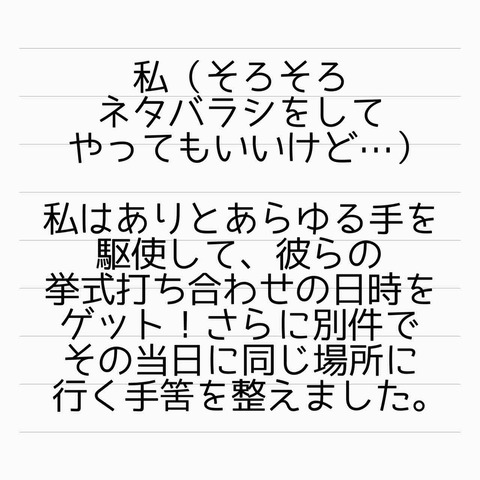 私（そろそろ
ネタバラシをして
やってもいいけど…）
私はありとあらゆる手を
駆使して、彼らの
挙式打ち合わせの日時を
ゲット！さらに別件で
その当日に同じ場所に
行く手筈を整えました。